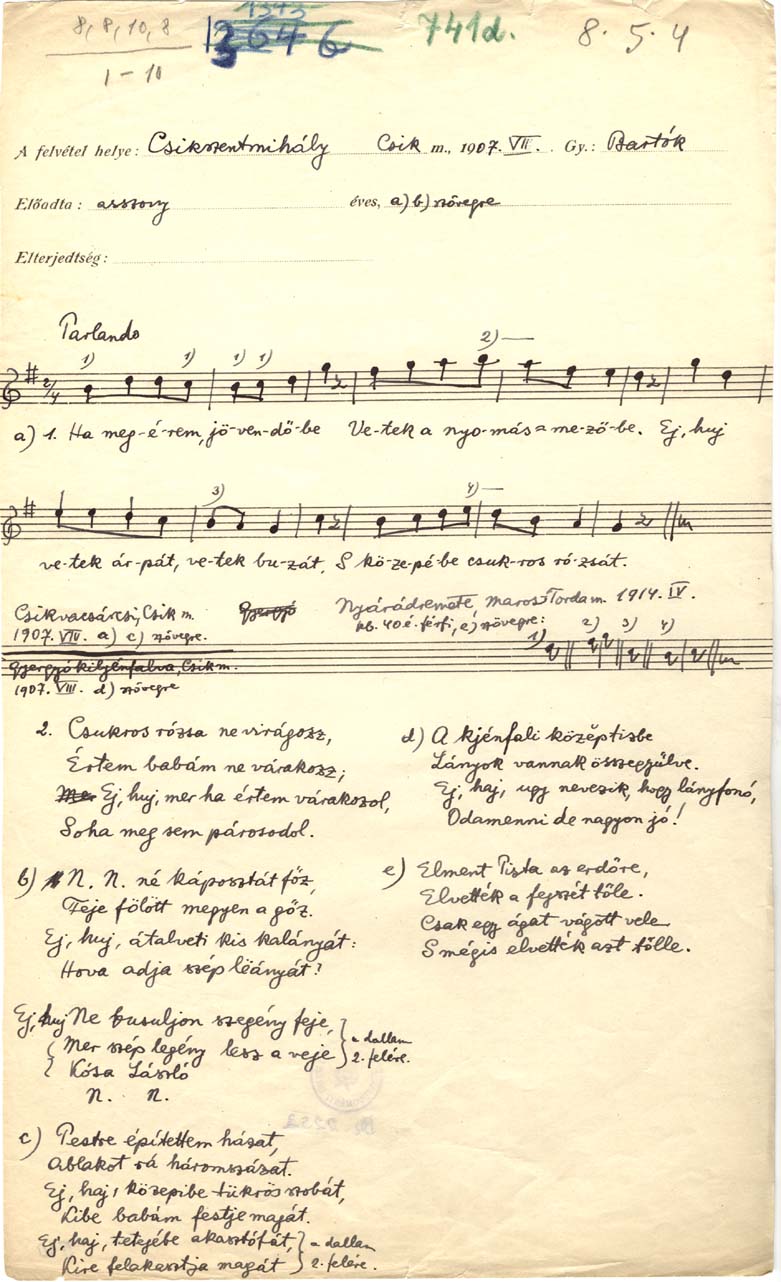 8, 8, 10, 8
1 – 10
741d.
8. 5. 4
A felvétel helye: Csikszentmihály Csik m., 1907. VII. Gy.: Bartók
Előadta: asszony éves, a) b) szövegre
Elterjedtség:
Parlando
1) 1) 1) 1) 2)
2/4
a) 1. Ha meg-é-rem, jö-ven-dő-be Ve-tek a nyo-más-me-ző-be. Ej, huj
3) 4)
ve-tek ár-pát, ve-tek bu-zát, S kö-ze-pé-be csuk-ros ró-zsát.
Csikvacsárcsi, Csik m. Gyergyó Nyárádremete, Maros-Torda m. 1914. IV.
1907. VIII. a) c) szövegre. kb. 40 é. férfi, e) szövegre:
1) 2) 3) 4)
Gyergyókiljénfalva, Csik m.
1907. VIII. d) szövegre
2. Csukros rózsa ne virágozz,
Értem babám ne várakozz;
Mer Ej, huj, mer ha értem várakozol,
Soha meg sem párosodol.
d) A kjénfali középtizbe
Lányok vannak összegyülve.
Ej, haj, ugy nevezik, hogy lányfonó,
Odamenni de nagyon jó!
b) N. N. né káposztát főz,
Feje fölött megyen a gőz.
Ej, huj, átalveti kis kalányát:
Hova adja szép lëányát?
e) Elment Pista az erdőre,
Elvették a fejszét tőle.
Csak egy ágat vágott vele
S mégis elvették azt tőlle.
Ej, huj Ne busuljon szegény feje,
Mer szép legény lesz a veje
Kósa László
N. N.
a dallam
2. felére.
c) Pestre építettem házat,
Ablakot rá háromszázat.
Ej, haj, közepibe tükrös szobát,
Kibe babám festje magát.
Ej, haj, tetejébe akasztófát,
Kire felakasztja magát
a dallam
2. felére.